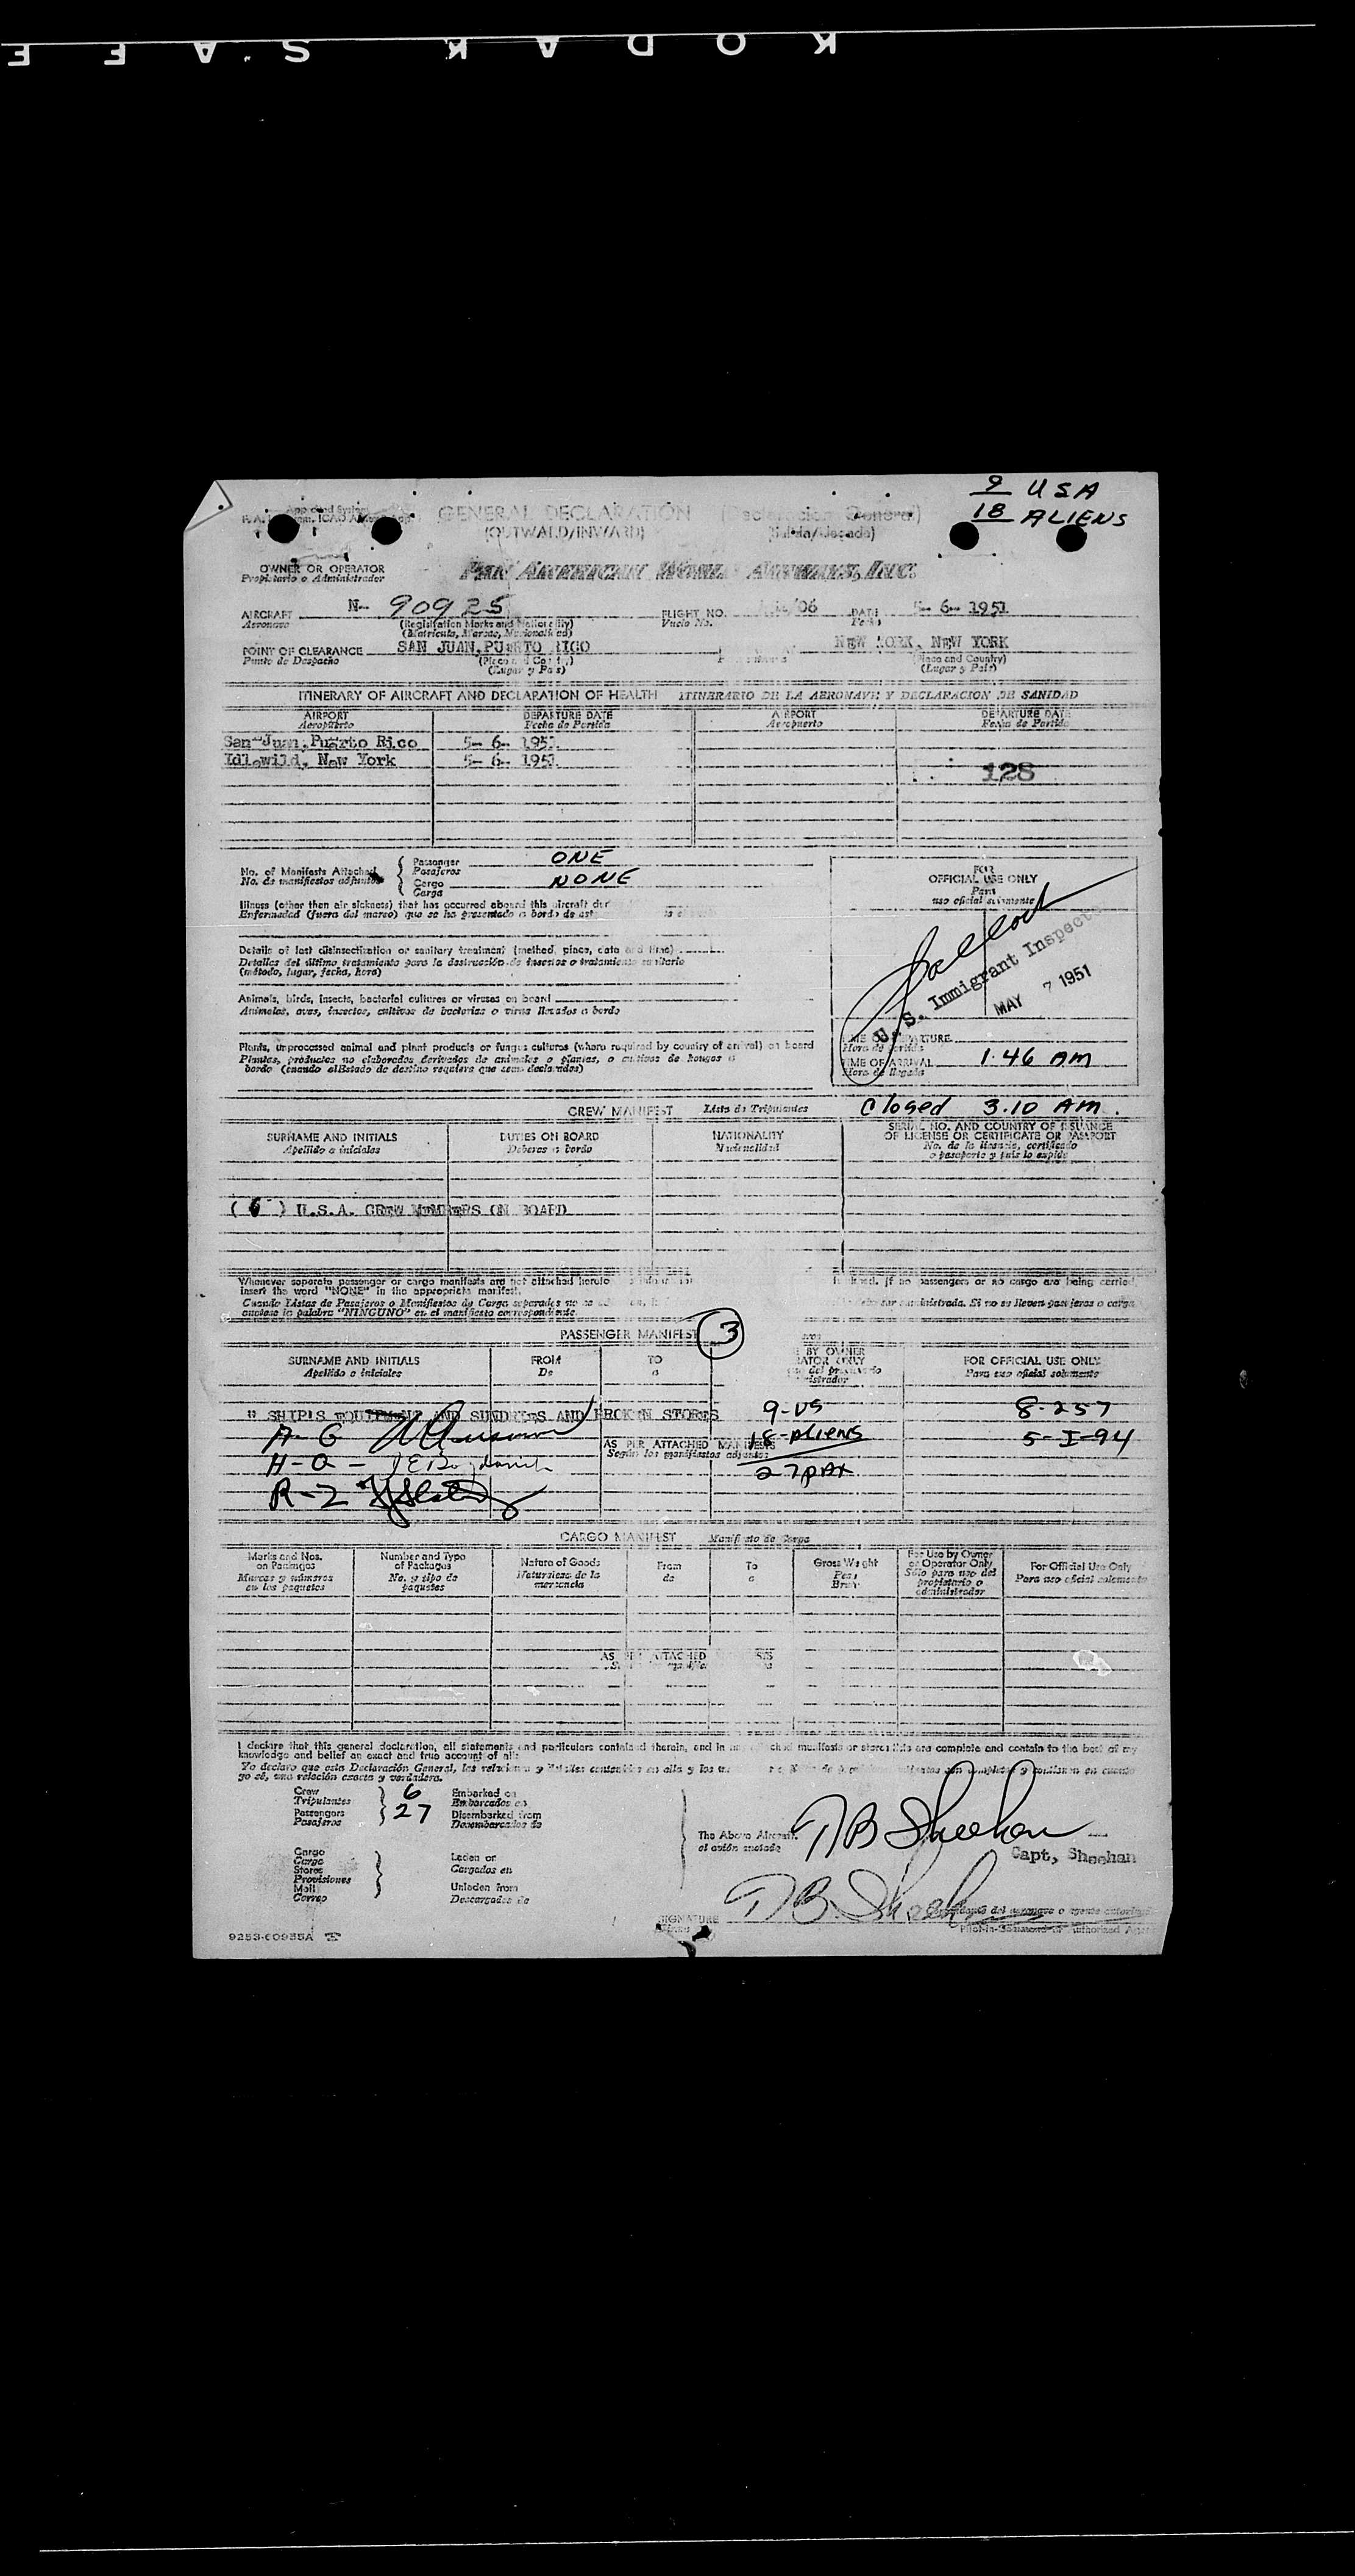 KODAK SAFE
9 USA
18 ALIENS
GENERAL DECLARATION
(OUTWARD/INWARD)
OWNER OR OPERATOR
Propietario o Administrador
PAN AMERICAN WORLD AIRWAYS, INC.
AIRCRAFT N- 90925 FLIGHT NO. /06 DATE 5-6-1951
Aeronave (Registration Marks and Nationality) Vuelo No. Fecha
(Matrícula, Marcas, Nacionalidad)
POINT OF CLEARANCE SAN JUAN, PUERTO RICO NEW YORK, NEW YORK
Punto de Despacho (Place and Country) (Place and Country)
(Lugar y País) (Lugar y País)
ITINERARY OF AIRCRAFT AND DECLARATION OF HEALTH ITINERARIO DE LA AERONAVE Y DECLARACION DE SANIDAD
AIRPORT DEPARTURE DATE AIRPORT DEPARTURE DATE
Aeropuerto Fecha de Partida Aeropuerto Fecha de Partida
San Juan, Puerto Rico 5-6-1951
Idlewild, New York 5-6-1951
128
No. of Manifests Attached Passenger ONE
No. de manifiestos adjuntos Pasajeros
Cargo NONE
Carga
FOR
OFFICIAL USE ONLY
Para
uso oficial solamente
Illness (other then air sickness) that has occurred aboard this aircraft dur
Enfermedad (fuera del mareo) que se ha presentado a bordo de est
Details of last disinsectization or sanitary treatment (method, place, date and time)
Detalles del último tratamiento para la destrucción de insectos o tratamiento sanitario
(método, lugar, fecha, hora)
U. S. Immigrant Inspector
MAY 7 1951
Animals, birds, insects, bacterial cultures or viruses on board
Animales, aves, insectos, cultivos de bacterias o virus llevados a bordo
Plants, unprocessed animal and plant products or fungus cultures (where required by country of arrival) on board
Plantas, productos no elaborados derivados de animales o plantas, o cultivos de hongos a
bordo (cuando el Estado de destino requiera que sean declarados)
TIME OF DEPARTURE
Hora de partida
TIME OF ARRIVAL 1.46 AM
Hora de llegada
CREW MANIFEST Lista de Tripulantes Closed 3.10 AM.
SURNAME AND INITIALS DUTIES ON BOARD NATIONALITY SERIAL NO. AND COUNTRY OF ISSUANCE
OF LICENSE OR CERTIFICATE OR PASSPORT
Apellido e iniciales Deberes a bordo Nacionalidad No. de la licencia, certificado
o pasaporte y país lo expide
(6) U.S.A. CREW MEMBERS ON BOARD
Whenever separate passenger or cargo manifests are not attached hereto if no passengers or no cargo are being carried,
insert the word "NONE" in the appropriate manifest.
Cuando Listas de Pasajeros o Manifiestos de Carga separados no se suministrada. Si no se llevan pasajeros o carga
anótese la palabra "NINGUNO" en el manifiesto correspondiente.
PASSENGER MANIFEST 3
SURNAME AND INITIALS FROM TO BY OWNER FOR OFFICIAL USE ONLY
Apellido e iniciales De a Para uso oficial solamente
" SHIP'S EQUIPMENT AND SUNDRIES AND BROKEN STORES 9-US 8-257
A-G AS PER ATTACHED MANIFESTS 18-ALIENS 5-I-94
Según los manifiestos adjuntos
H-Q - 27 PAX
R-Z
CARGO MANIFEST Manifiesto de Carga
Marks and Nos. on Packages Number and Type of Packages Nature of Goods From To Gross Weight For Use by Owner or Operator Only For Official Use Only
Marcas y números en los paquetes No. y tipo de paquetes Naturaleza de la mercancía de a Peso Bruto Sólo para uso del propietario o administrador Para uso oficial solamente
AS PER ATTACHED MANIFESTS
I declare that this general declaration, all statements and particulars contained therein, and in any attached manifests or stores lists are complete and contain to the best of my
knowledge and belief an exact and true account of all:
Yo declaro que esta Declaración General,
yo sé, una relación exacta y verdadera.
Crew 6 Embarked on
Tripulantes Embarcados en
Passengers 27 Disembarked from
Pasajeros Desembarcados de
The Above Aircraft.
el avión anotado
DB Sheehan
Capt, Sheehan
Cargo Laden on
Carga Cargados en
Stores
Provisiones
Mail Unladen from
Correo Descargados de
SIGNATURE DB Sheehan
9253-60955A